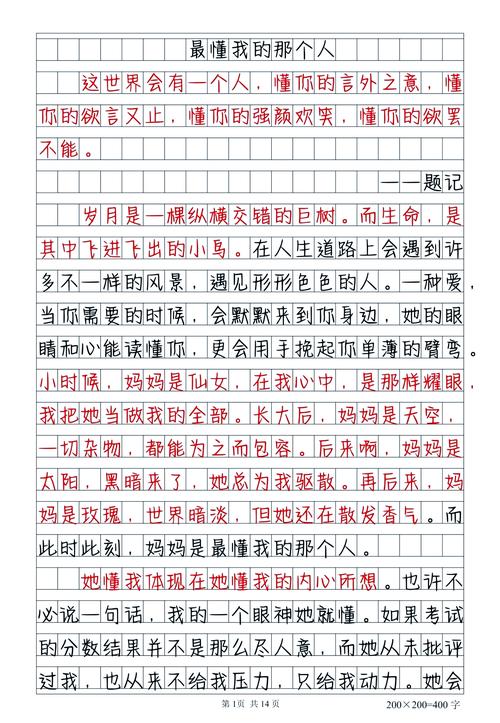 最懂我的那个人
这世界会有一个人，懂你的言外之意，懂
你的欲言又止，懂你的强颜欢笑，懂你的欲罢
不能。
——题记
岁月是一棵纵横交错的巨树。而生命，是
其中飞进飞出的小鸟。在人生道路上会遇到许
多不一样的风景，遇见形形色色的人。一种爱，
当你需要的时候，会默默来到你身边，她的眼
睛和心能读懂你，更会用手挽起你单薄的臂弯。
小时候，妈妈是仙女，在我心中，是那样耀眼，
我把她当做我的全部。长大后，妈妈是天空，
一切杂物，都能为之而包容。后来啊，妈妈是
太阳，黑暗来了，她总为我驱散。再后来，妈
妈是玫瑰，世界暗淡，但她还在散发香气。而
此时此刻，妈妈是最懂我的那个人。
她懂我体现在她懂我的内心所想。也许不
必说一句话，我的一个眼神她就懂。如果考试
的分数结果并不是那么尽人意，而她从未批评
过我，也从来不给我压力，只给我动力。她会
第 1页 共 14 页
200×200=400 字